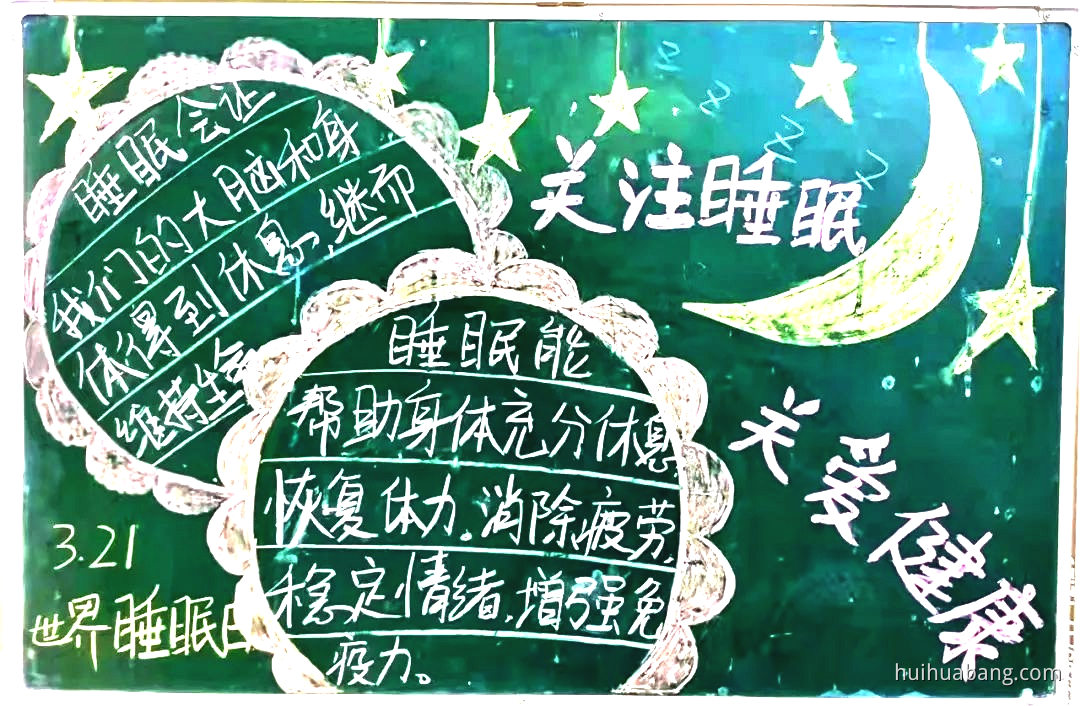 关注睡眠
睡眠会让
我们的大脑和身
体得到休息,继而
维持生命
睡眠能
帮助身体充分休息
恢复体力。消除疲劳,
稳定情绪,增强免
疫力。
关爱健康
3.21
世界睡眠日
huihuabang.com